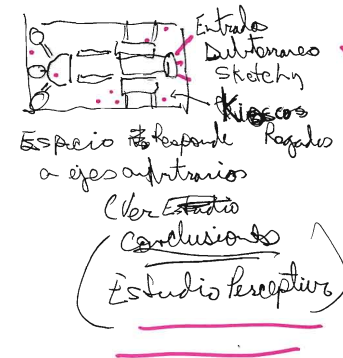 Entradas
Subterraneo
Sketchy
Kioscos
Espacio Responde Regados
a ejes arbitrarios
(Ver Estudio
Conclusions
Estudio Perceptivo